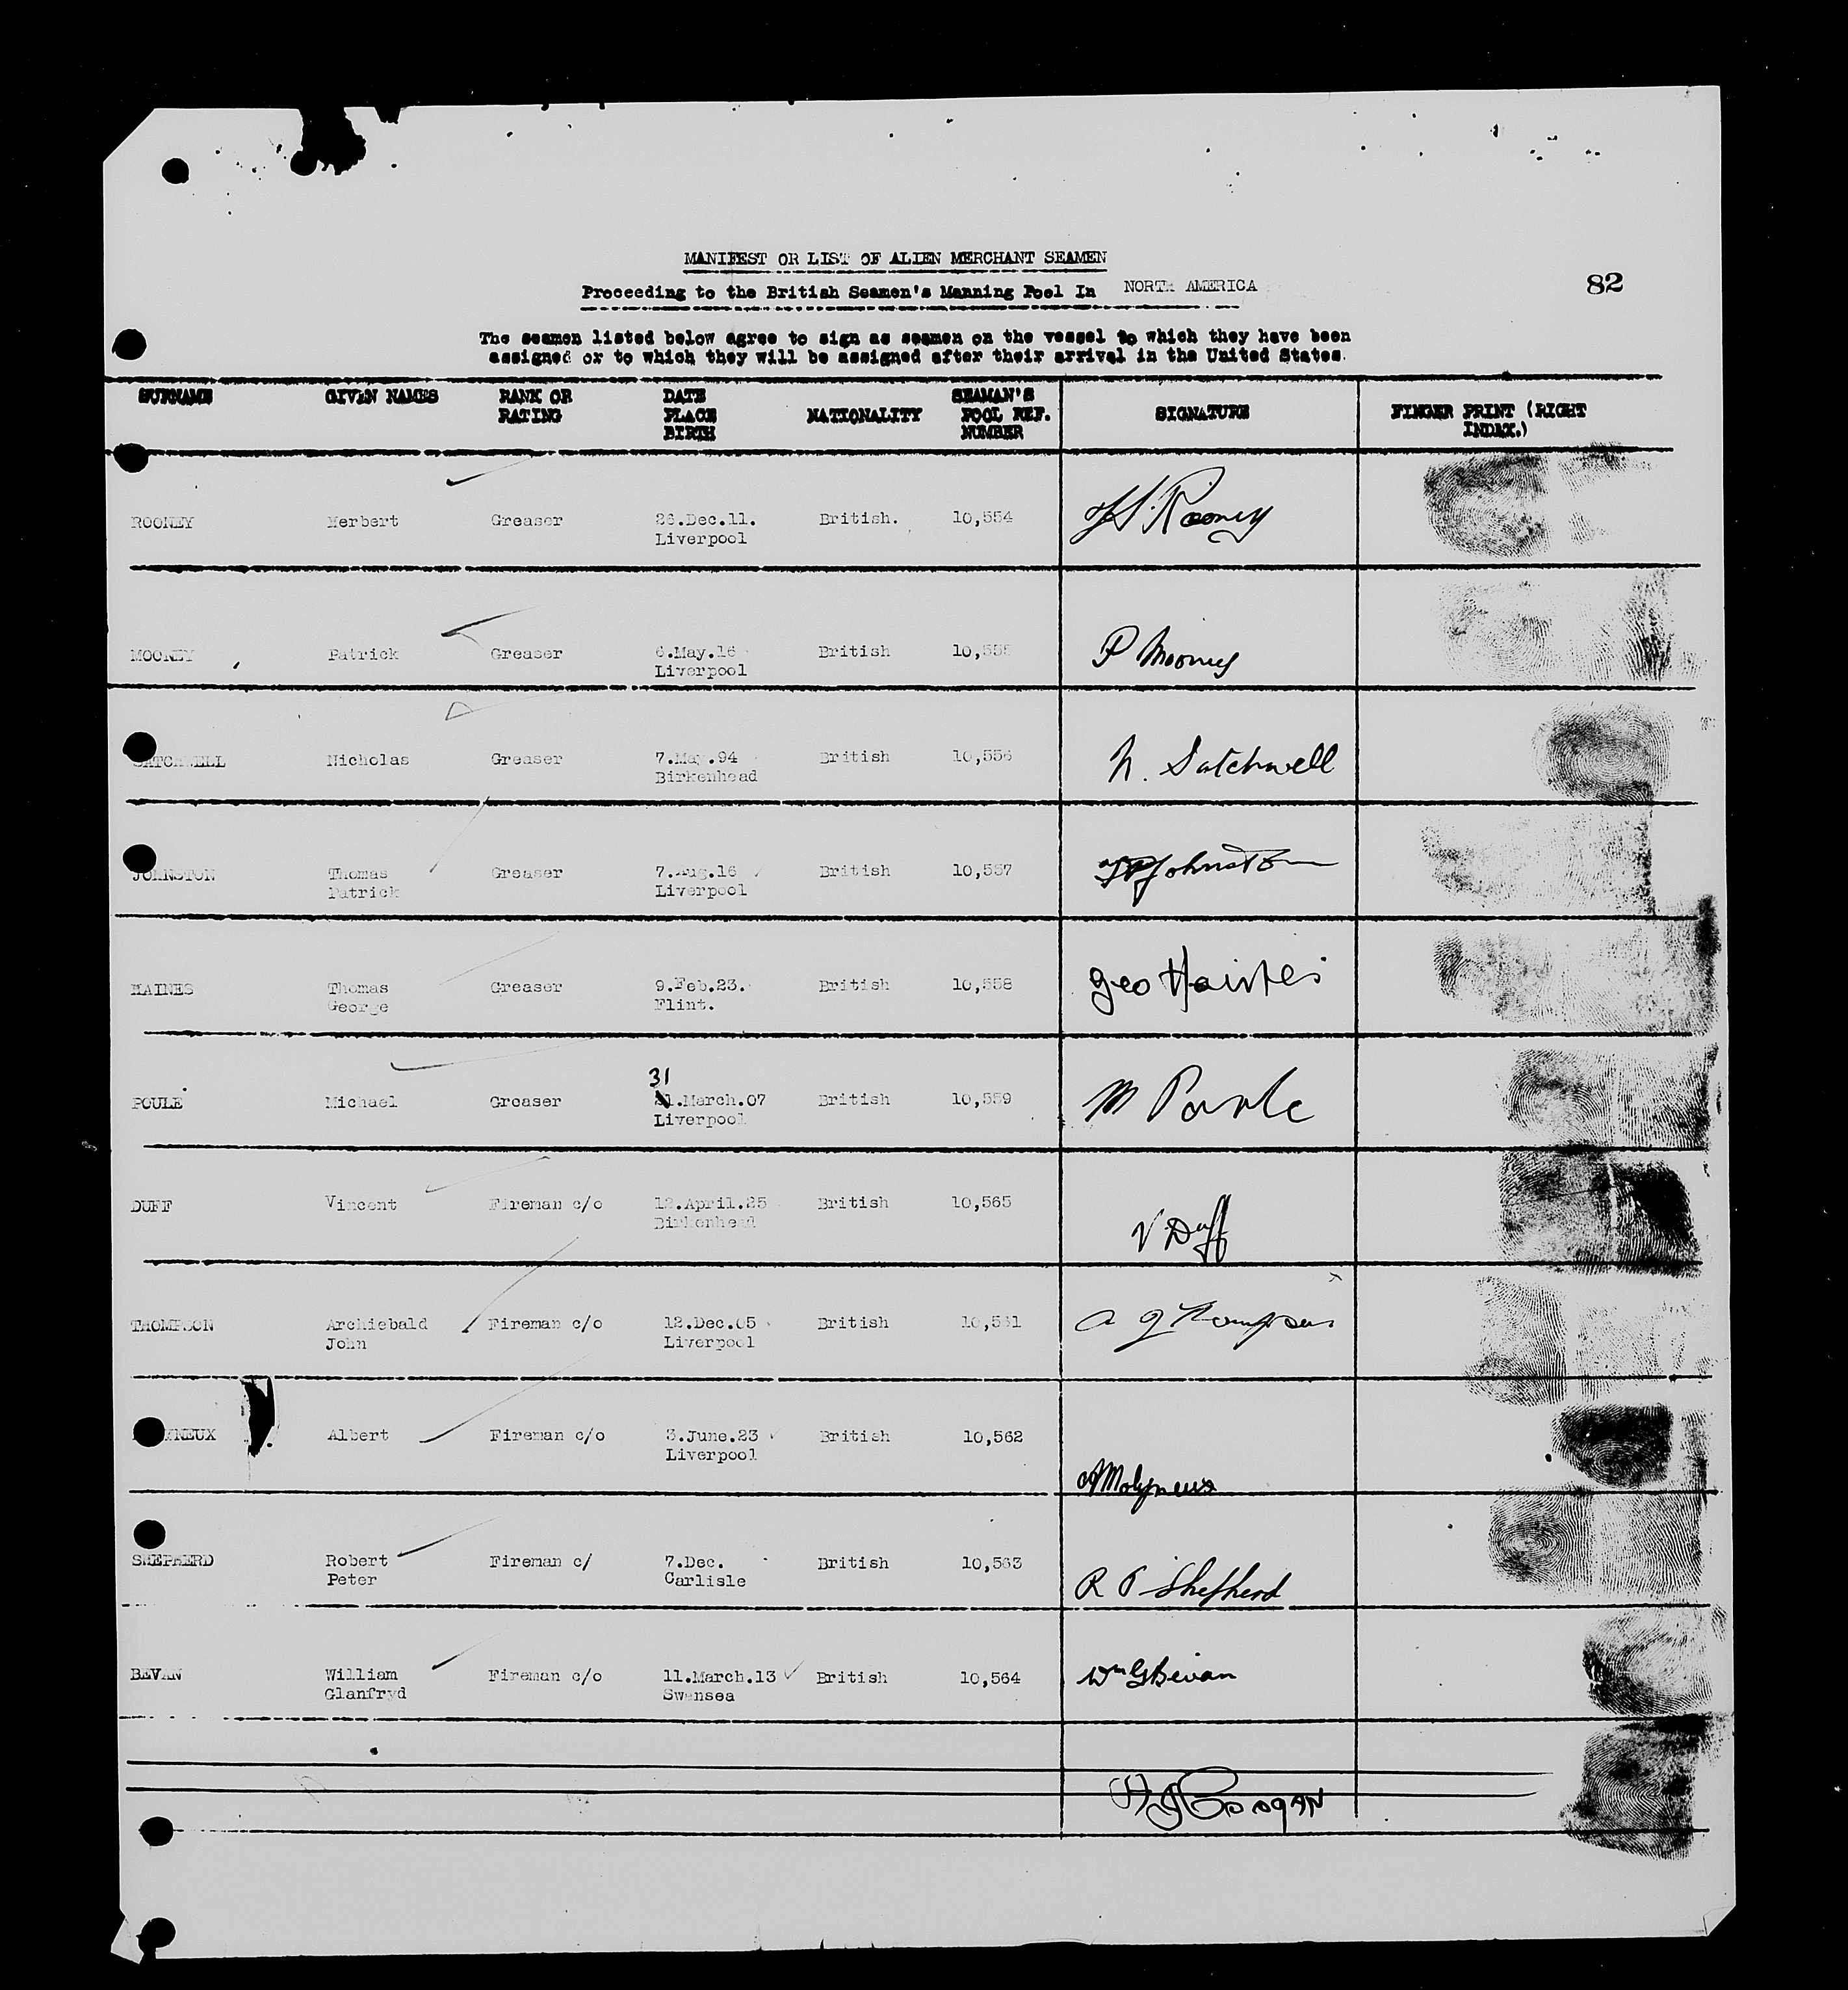 MANIFEST OR LIST OF ALIEN MERCHANT SEAMEN
82
Proceeding to the British Seamen's Manning Pool In NORTH AMERICA
The seamen listed below agree to sign as seamen on the vessel to which they have been
assigned or to which they will be assigned after their arrival in the United States.
SURNAME GIVEN NAMES RANK OR RATING DATE PLACE BIRTH NATIONALITY SEAMAN'S POOL REF. NUMBER SIGNATURE FINGER PRINT (RIGHT INDAX.)
ROONEY Herbert Greaser 26.Dec.11. British. 10,554 H Rooney
Liverpool
MOONEY Patrick Greaser 6.May.16 British 10,555 P Mooney
Liverpool
SATCHWELL Nicholas Greaser 7.May.94 British 10,556 N. Satchwell
Birkenhead
JOHNSTON Thomas Greaser 7.Aug.16 British 10,557 T P Johnston
Patrick Liverpool
HAINES Thomas Greaser 9.Feb.23. British 10,558 Geo Haines
George Flint.
31
POULE Michael Greaser 21.March.07 British 10,559 M Poule
Liverpool
DUFF Vincent Fireman c/o 12.April.25 British 10,565 V Duff
Birkenhead
THOMPSON Archiebald Fireman c/o 12.Dec.05 British 10,561 A J Thompson
John Liverpool
NEUX Albert Fireman c/o 3.June.23 British 10,562 A Molyneux
Liverpool
SHEPHERD Robert Fireman c/ 7.Dec. British 10,563 R P Shepherd
Peter Carlisle
BEVAN William Fireman c/o 11.March.13 British 10,564 Wm G Bevan
Glanfryd Swansea